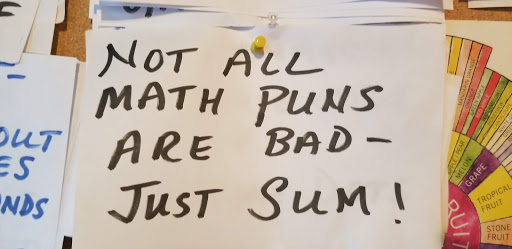 NOT ALL
MATH PUNS
ARE BAD-
JUST SUM!
OUT
ES
NDS
MELON
GRAPE
TROPICAL
FRUIT
STONE
FRUIT